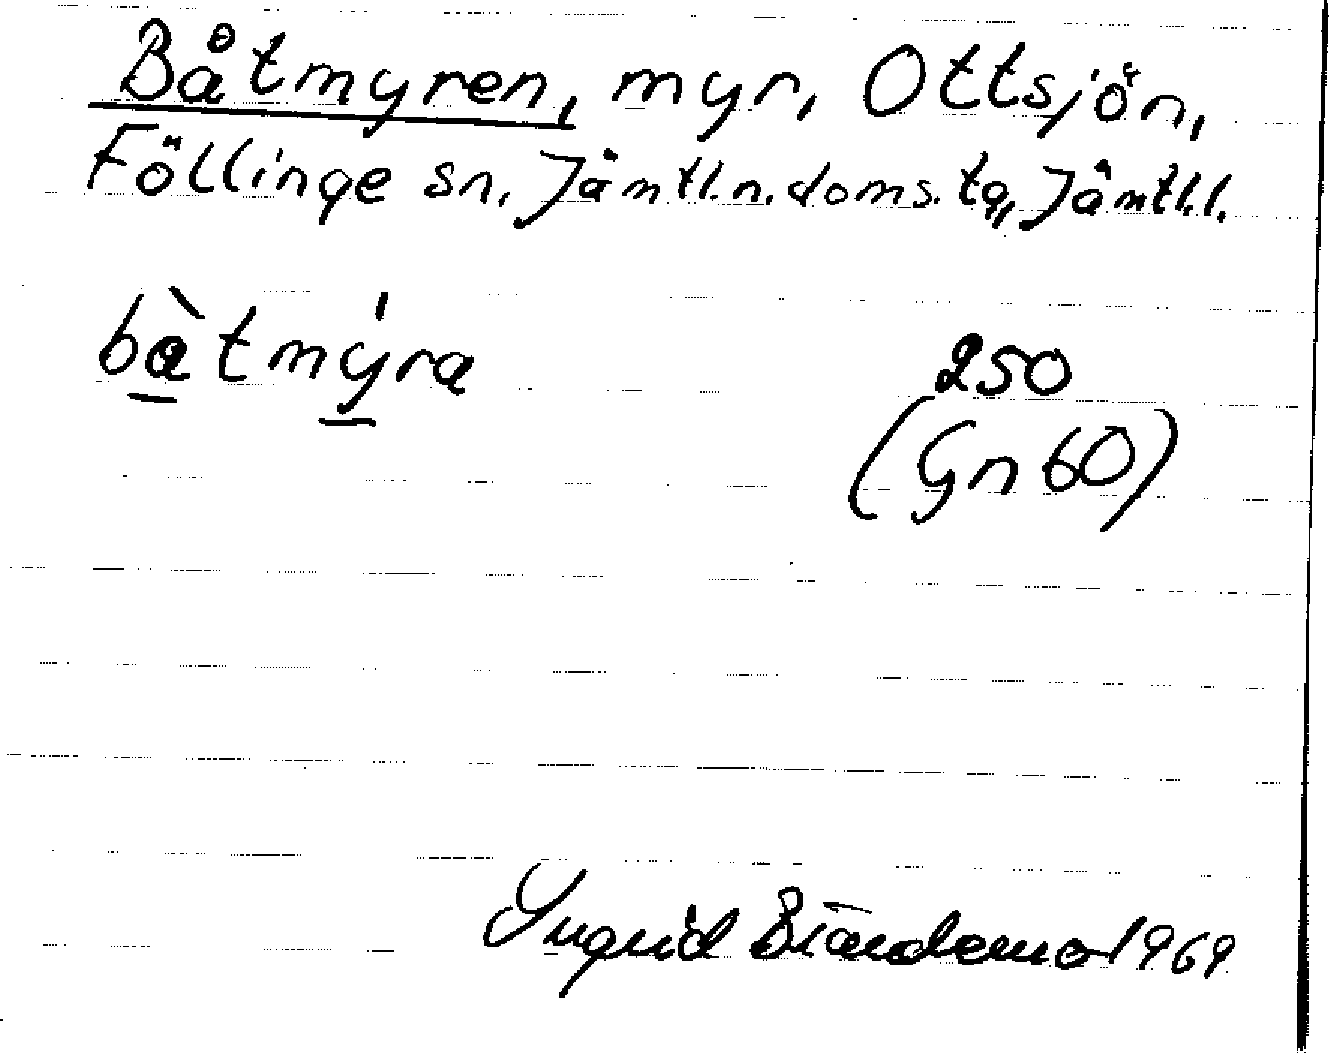 Båtmyren, myr, Ottsjön,
Föllinge sn, Jämtl.n.doms.tg, Jämtl.l.
bàtmýra
250
(Gn 60)
Ingrid Brändemo 1969